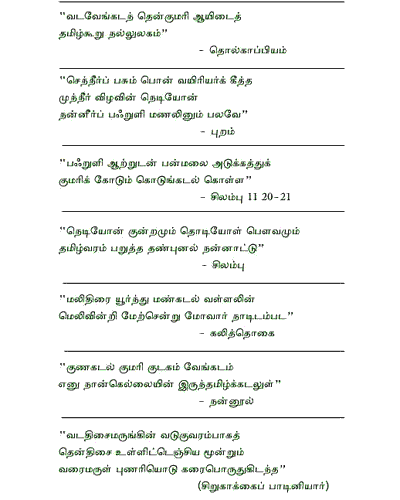 "வடவேங்கடந் தென்குமரி ஆயிடைத்
தமிழ்கூறு நல்லுலகம்"
- தொல்காப்பியம்
"செந்நீர்ப் பசும் பொன் வயிரியர்க் கீத்த
முந்நீர் விழவின் நெடியோன்
நன்னீர்ப் பஃறுளி மணலினும் பலவே"
- புறம்
"பஃறுளி ஆற்றுடன் பன்மலை அடுக்கத்துக்
குமரிக் கோடும் கொடுங்கடல் கொள்ள"
- சிலம்பு 11 20-21
"நெடியோன் குன்றமும் தொடியோள் பௌவமும்
தமிழ்வரம் பறுத்த தண்புனல் நன்னாட்டு"
- சிலம்பு
"மலிதிரை யூர்ந்து மண்கடல் வள்ளலின்
மெலிவின்றி மேற்சென்று மோவார் நாடிடம்பட"
- கலித்தொகை
"குணகடல் குமரி குடகம் வேங்கடம்
எனு நான்கெல்லையின் இருந்தமிழ்க்கடலுள்"
- நன்னூல்
"வடதிசைமருங்கின் வடுகுவரம்பாகத்
தென்திசை உள்ளிட்டெஞ்சிய மூன்றும்
வரைமருள் புணரியொடு கரைபொருதுகிடந்த"
(சிறுகாக்கைப் பாடினியார்)